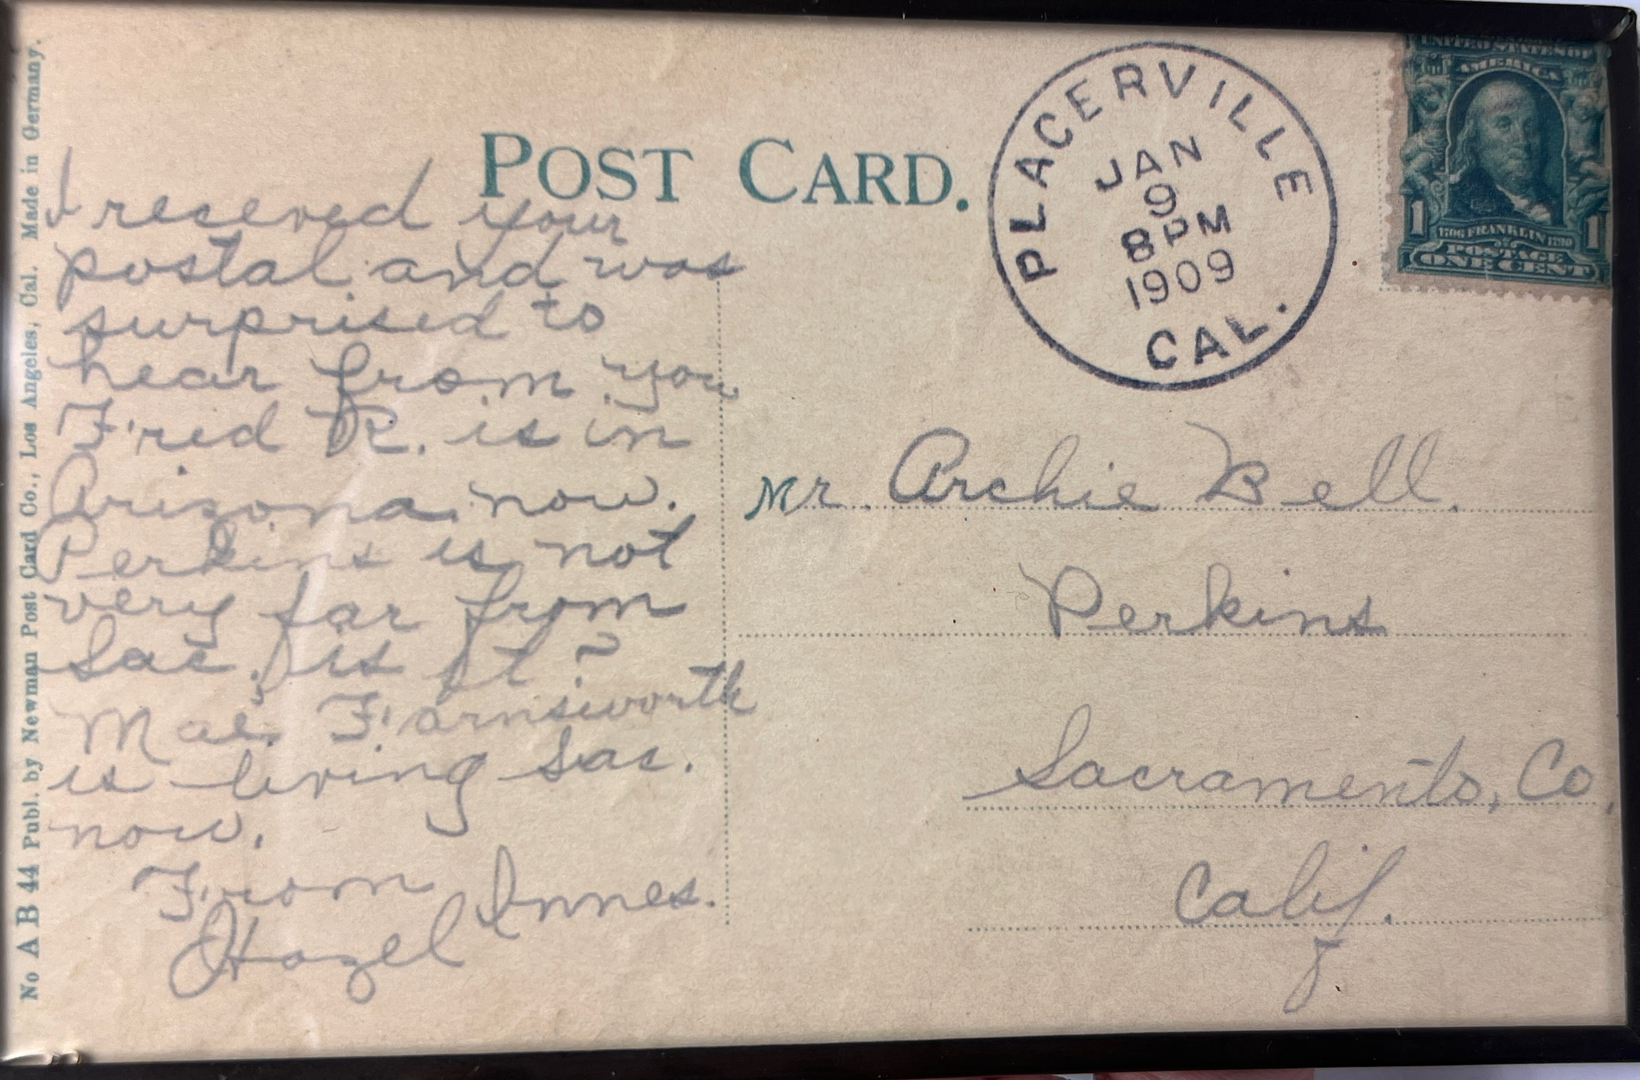 No A B 44 Publ. by Newman Post Card Co., Los Angeles, Cal. Made in Germany.
POST CARD.
PLACERVILLE
JAN
9
8 PM
1909
CAL.
UNITED STATES OF
AMERICA
1 1
1706 FRANKLIN 1790
POSTAGE
ONE CENT
I reseved your
postal and was
surprised to
hear from you
Fred R. is in
Arizona now.
Perkins is not
very far from
Sac. is it?
Mae Farnsworth
is living Sac.
now.
From
Hazel Innes.
Mr. Archie Bell.
Perkins
Sacramento, Co.
Calif.